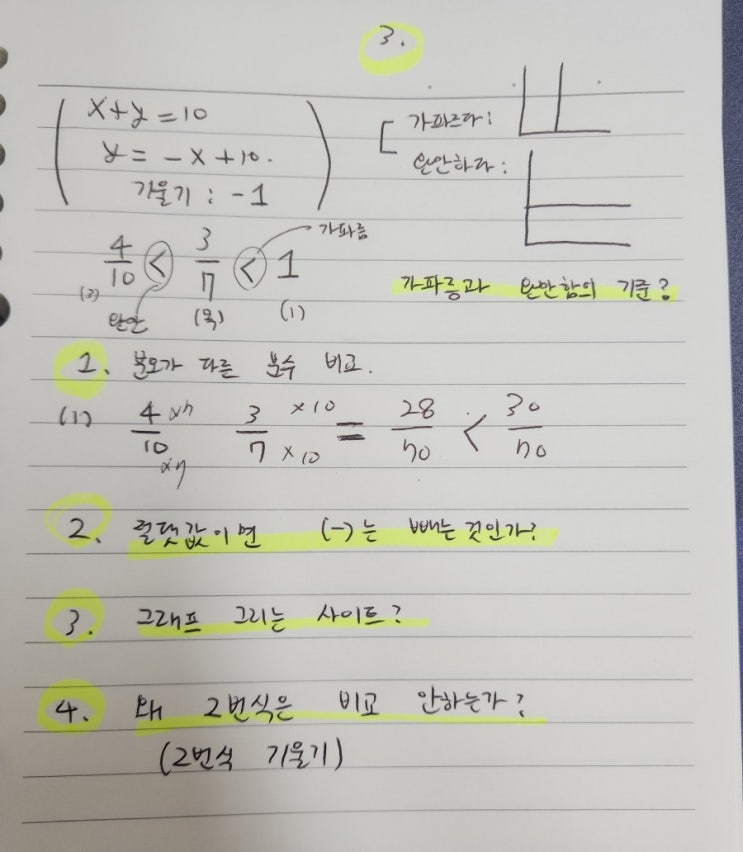 3.
x+y=10
y = -x+10.
기울기 : -1
가파르다 :
완만하다 :
4/10 < 3/7 < 1
가파름
완만
(목)
(1)
가파름과 완만함의 기준?
1. 분모가 다른 분수 비교.
(1) 4/10 ×7 ×7 3/7 ×10 ×10 = 28/70 < 30/70
2. 절댓값이면 (-)는 빼는것인가?
3. 그래프 그리는 사이트?
4. 왜 2번식은 비교 안하는가?
(2번식 기울기)